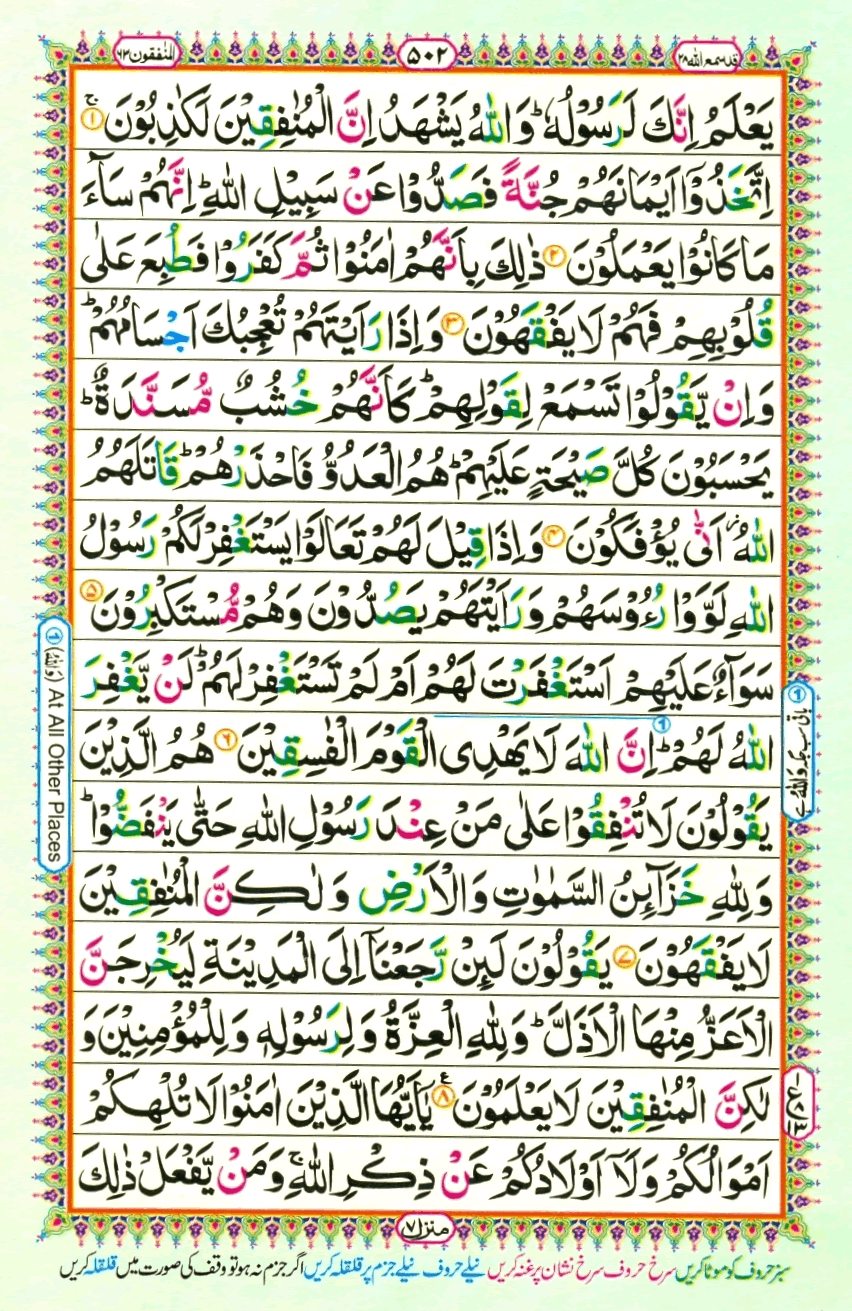 قد سمع الله ۲۸
۵۰۲
المنٰفقون ۶۳
يَعْلَمُ اِنَّكَ لَرَسُوْلُهٗ ؕ وَاللّٰهُ يَشْهَدُ اِنَّ الْمُنٰفِقِيْنَ لَكٰذِبُوْنَ ۚ‏ ۱
اِتَّخَذُوْۤا اَيْمَانَهُمْ جُنَّةً فَصَدُّوْا عَنْ سَبِيْلِ اللّٰهِ ؕ اِنَّهُمْ سَآءَ
مَا كَانُوْا يَعْمَلُوْنَ ۲ ذٰلِكَ بِاَنَّهُمْ اٰمَنُوْا ثُمَّ كَفَرُوْا فَطُبِعَ عَلٰى
قُلُوْبِهِمْ فَهُمْ لَا يَفْقَهُوْنَ ۳ وَاِذَا رَاَيْتَهُمْ تُعْجِبُكَ اَجْسَامُهُمْ ؕ
وَاِنْ يَّقُوْلُوْا تَسْمَعْ لِقَوْلِهِمْ ؕ كَاَنَّهُمْ خُشُبٌ مُّسَنَّدَةٌ ؕ
يَحْسَبُوْنَ كُلَّ صَيْحَةٍ عَلَيْهِمْ ؕ هُمُ الْعَدُوُّ فَاحْذَرْهُمْ ؕ قَاتَلَهُمُ
اللّٰهُ اَنّٰى يُؤْفَكُوْنَ ۴ وَاِذَا قِيْلَ لَهُمْ تَعَالَوْا يَسْتَغْفِرْ لَكُمْ رَسُوْلُ
اللّٰهِ لَوَّوْا رُءُوْسَهُمْ وَرَاَيْتَهُمْ يَصُدُّوْنَ وَهُمْ مُّسْتَكْبِرُوْنَ ۵
سَوَآءٌ عَلَيْهِمْ اَسْتَغْفَرْتَ لَهُمْ اَمْ لَمْ تَسْتَغْفِرْ لَهُمْ ؕ لَنْ يَّغْفِرَ
اللّٰهُ لَهُمْ ؕ اِنَّ اللّٰهَ لَا يَهْدِى الْقَوْمَ الْفٰسِقِيْنَ ۶ هُمُ الَّذِيْنَ
يَقُوْلُوْنَ لَا تُنْفِقُوْا عَلٰى مَنْ عِنْدَ رَسُوْلِ اللّٰهِ حَتّٰى يَنْفَضُّوْا ؕ
وَلِلّٰهِ خَزَآئِنُ السَّمٰوٰتِ وَالْاَرْضِ وَلٰكِنَّ الْمُنٰفِقِيْنَ
لَا يَفْقَهُوْنَ ۷ يَقُوْلُوْنَ لَئِنْ رَّجَعْنَاۤ اِلَى الْمَدِيْنَةِ لَيُخْرِجَنَّ
الْاَعَزُّ مِنْهَا الْاَذَلَّ ؕ وَلِلّٰهِ الْعِزَّةُ وَلِرَسُوْلِهٖ وَلِلْمُؤْمِنِيْنَ وَ
لٰكِنَّ الْمُنٰفِقِيْنَ لَا يَعْلَمُوْنَ ۸ يٰۤاَيُّهَا الَّذِيْنَ اٰمَنُوْا لَا تُلْهِكُمْ
اَمْوَالُكُمْ وَلَاۤ اَوْلَادُكُمْ عَنْ ذِكْرِ اللّٰهِ ۚ وَمَنْ يَّفْعَلْ ذٰلِكَ
باقی سب جگہ وَاللّٰهُ ہے
(وَاللّٰهُ) At All Other Places
منزل ۷
سبز حروف کو موٹا کریں سرخ حروف سرخ نشان پر غنہ کریں نیلے حروف نیلے جزم پر قلقلہ کریں اگر جزم نہ ہو تو وقف کی صورت میں قلقلہ کریں